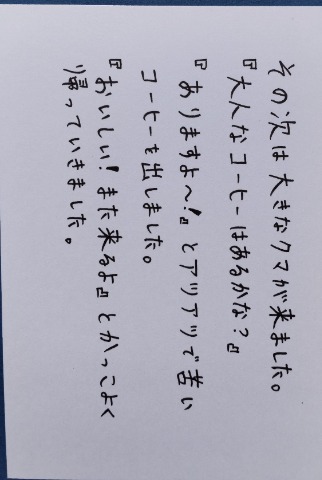 その次は大きなクマが来ました。
『大人なコーヒーはあるかな?』
『ありますよ〜!』とアツアツで苦い
コーヒーを出しました。
『おいしい!また来るよ』とかっこよく
帰っていきました。